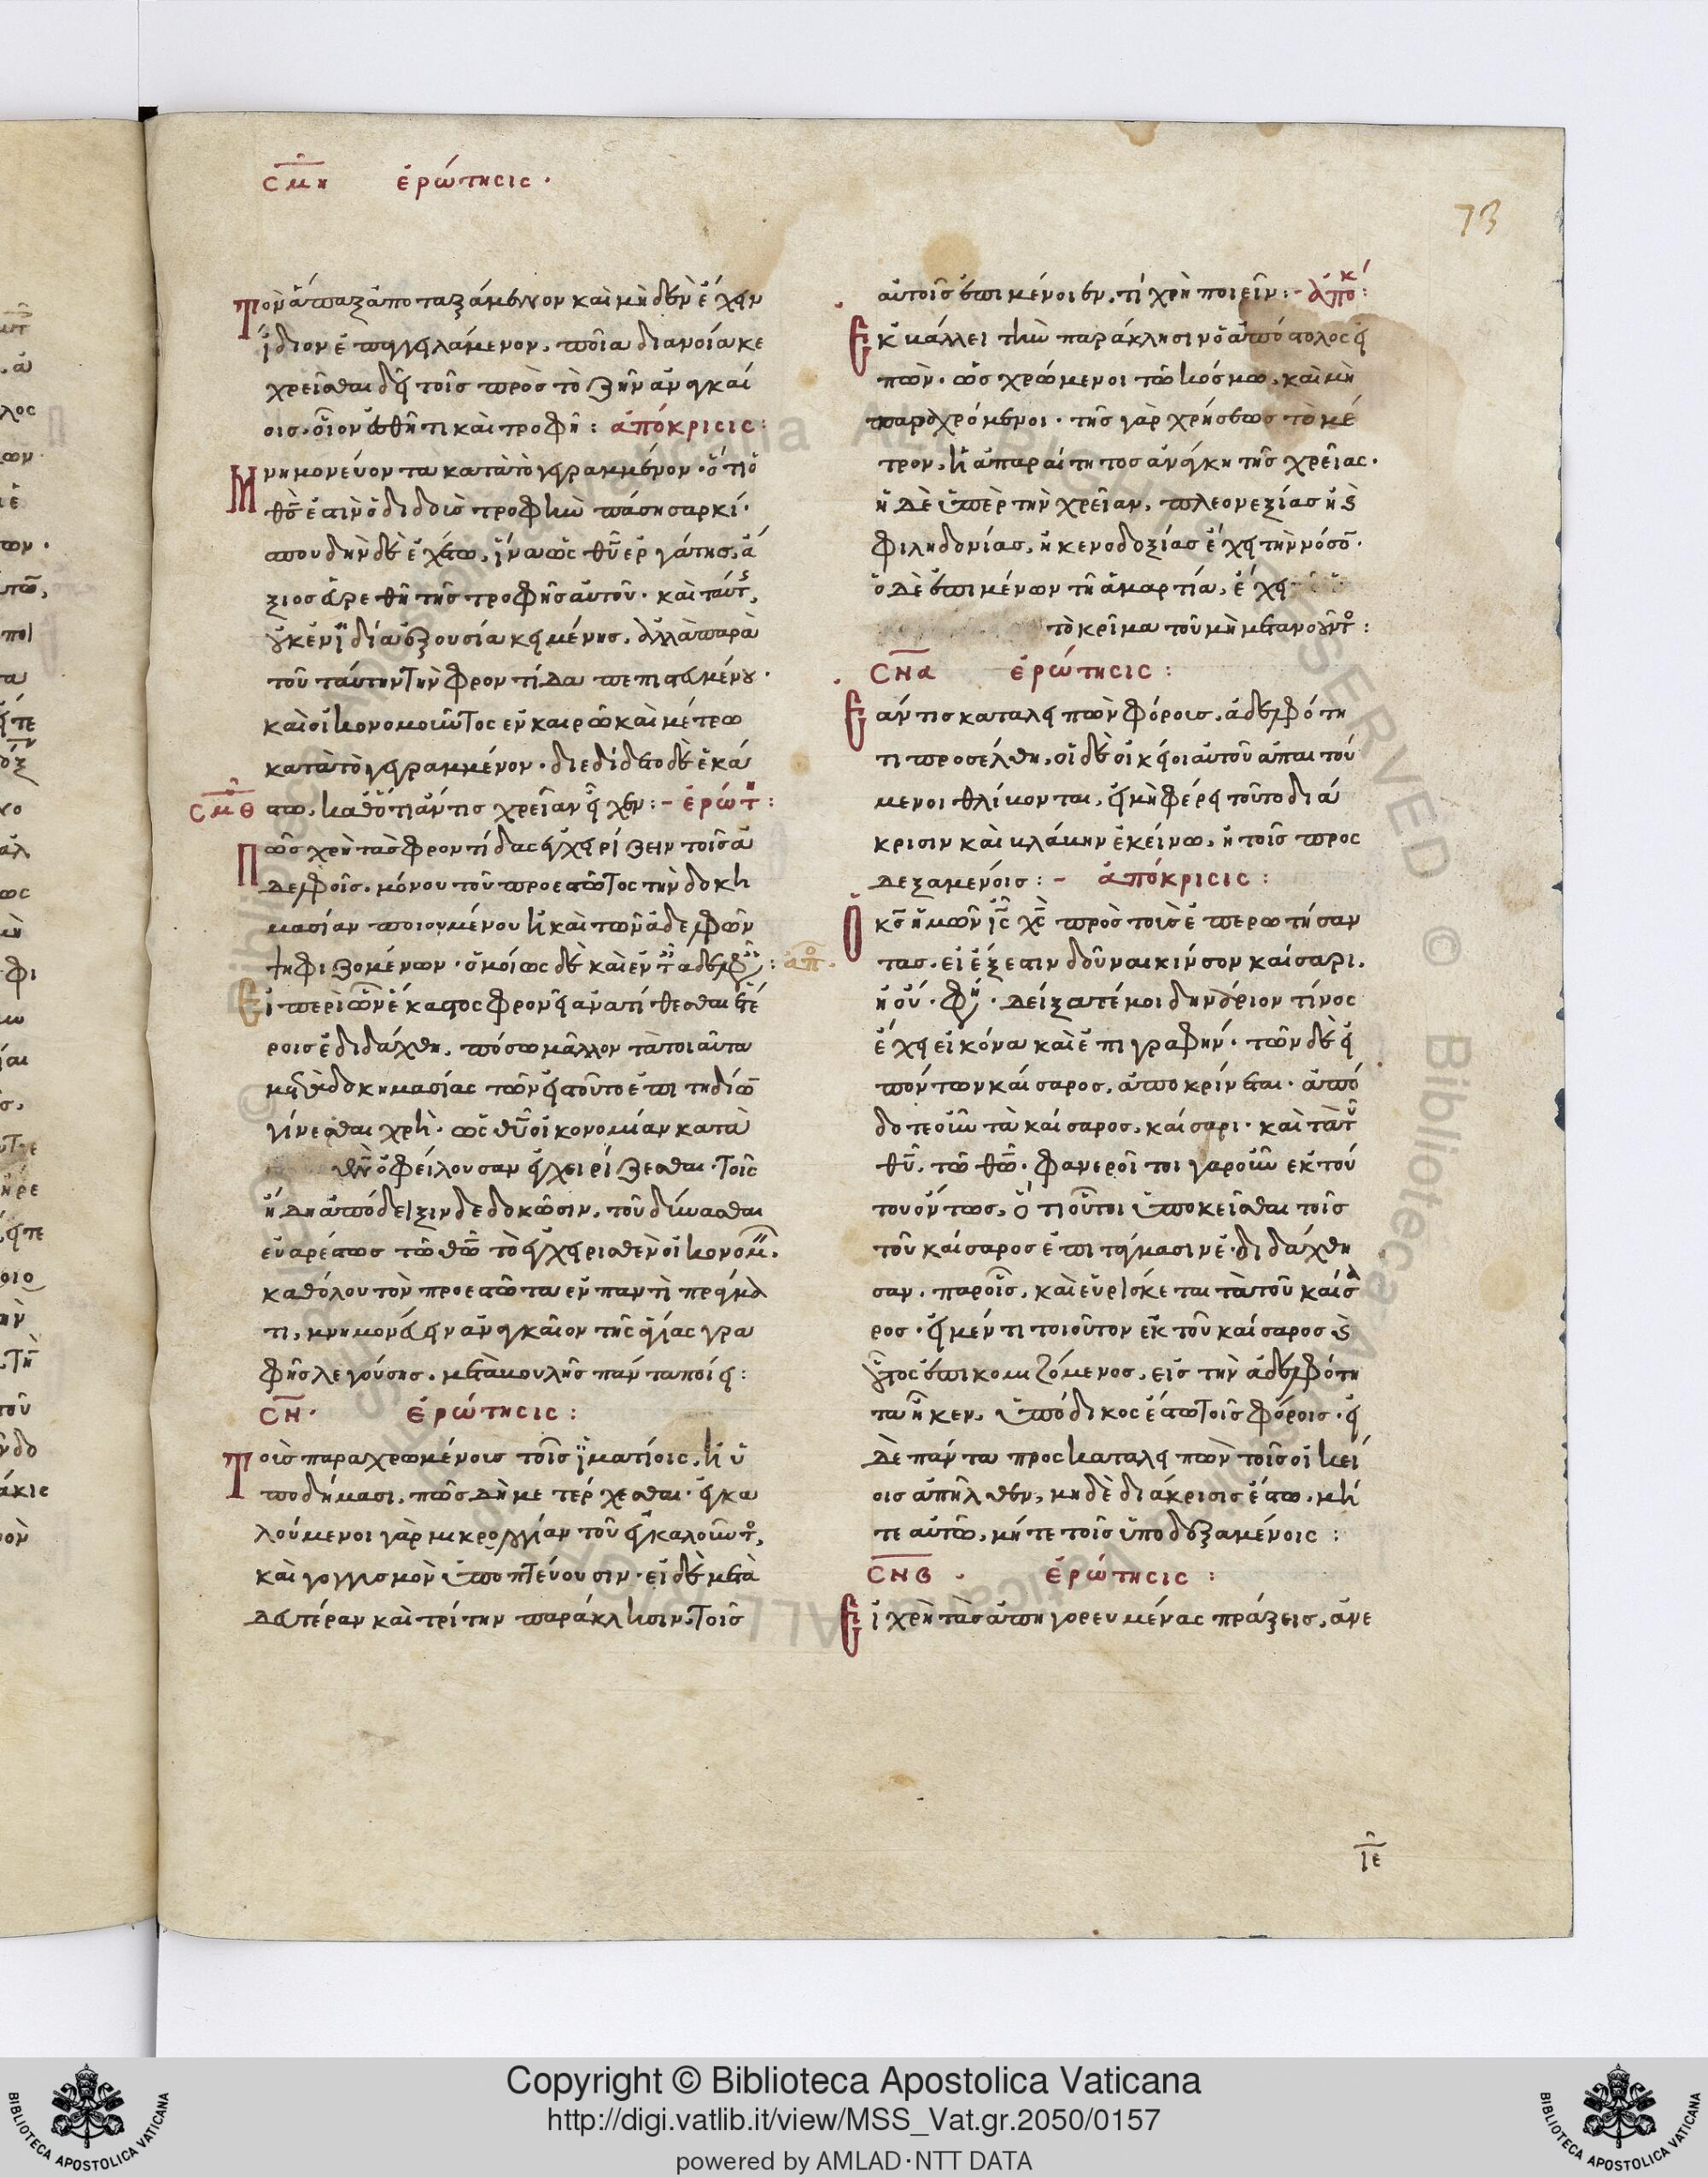 σμη ἐρώτησις·
73
Τὸν ἅπαξ ἀποταξάμενον καὶ μηδὲν ἔχειν
ἴδιον ἐπαγγειλάμενον, ποία διανοία κε
χρεῖσθαι δεῖ τοῖς πρὸς τὸ ζῆν ἀναγκαί
οις. οἷον ἐσθῆτι καὶ τροφῆ: ἀπόκρισις:
Μνημονεύοντα κατὰ τὸ γεγραμμένον· ὅτι ὁ
θς ἐστὶν ὁ διδοὺς τροφὴν πάση σαρκί·
σπουδὴν δὲ ἐχέτω, ἵνα ὡς θυ ἐργάτης, ἄ
ξιος εὑρεθῆ τῆς τροφῆς αὐτοῦ· καὶ ταύτ,
οὐκ ἐν ἰδία ἐξουσία κειμένης, ἀλλὰ παρὰ
τοῦ ταύτην τὴν φροντίδα πεπιστευμένου·
καὶ οἰκονομοῦντος ἐν καιρῶ καὶ μέτρω
κατὰ τὸ γεγραμμένον· διεδίδετο δὲ ἑκά
σμθ στω, καθότι ἄν τις χρείαν εἶχεν:- ἐρώτη:
Πῶς χρὴ τὰς φροντίδας ἐγχειρίζειν τοῖς ἀ
δελφοῖς. μόνου τοῦ προεστῶτος τὴν δοκη
μασίαν ποιουμένου ἢ καὶ τῶν ἀδελφῶν
ψηφιζομένων· ὁμοίως δὲ καὶ ἐν τ ἀδελφ: ἀπο
Εἰ περὶ ὧν ἕκαστος φρονεῖ ἀνατίθεσθαι ἑτέ
ροις ἐδιδάχθη, πόσω μᾶλλον τὰ τοιαῦτα
μετὰ δοκημασίας τῶν εἰς τοῦτο ἐπιτηδίων
γίνεσθαι χρή· ὡς θυ οἰκονομίαν κατὰ
θν ὀφείλουσαν ἐγχειρίζεσθαι· τοῖς
ἤδη ἀπόδειξιν δεδοκῶσιν, τοῦ δύνασθαι
εὐαρέστως τῶ θω τὸ ἐγχειρισθὲν οἰκονομ.
καθόλου τὸν προεστῶτα ἐν παντὶ πράγμα
τι, μνημονεύειν ἀναγκαῖον τῆς ἁγίας γρα
φῆς λεγούσης. μετὰ βουλῆς πάντα ποίει:
σν· ἐρώτησις:
Τοῖς παραχρωμένοις τοῖς ἱματίοις, ἢ ὑ
ποδήμασι, πῶς δὴ μετέρχεσθαι· ἐγκα
λούμενοι γὰρ μικρολογίαν τοῦ ἐγκαλοῦντο,
καὶ γογγισμὸν ὑποπτεύουσιν· εἰ δὲ μετὰ
δευτέραν καὶ τρίτην παράκλησιν, τοῖς
αὐτοῖς ἐπιμένοιεν, τί χρὴ ποιεῖν:- ἀποκ:
Ἐκβάλλει τὴν παράκλησιν ὁ ἀπόστολος εἰ
πών· ὡς χρώμενοι τῶ κόσμω, καὶ μὴ
παραχρόμενοι· τῆς γὰρ χρήσεως τὸ μέ
τρον, ἡ ἀπαραίτητος ἀνάγκη τῆς χρείας·
ἡ δὲ ὑπὲρ τὴν χρείαν, πλεονεξίας ἢ
φιληδονίας, ἢ κενοδοξίας ἔχει τὴν νόσο·
ὁ δὲ ἐπιμένων τῆ ἁμαρτία, ἔχει
τὸ κρῖμα τοῦ μὴ μετανοοῦντο:
σνα ἐρώτησις:
Ἐάν τις καταλειπὼν φόροις, ἀδελφότη
τι προσέλθη, οἱ δὲ οἰκεῖοι αὐτοῦ ἀπαιτού
μενοι θλίβονται, εἰ μὴ φέρει τοῦτο διά
κρισιν καὶ βλάβην ἐκείνω, ἢ τοῖς προς
δεξαμένοις:- ἀπόκρισις:
Ὁ κς ἡμῶν ις χς πρὸς τοὺς ἐπερωτήσαν
τας. εἰ ἔξεστιν δοῦναι κίνσον καίσαρι.
ἢ οὔ· φη· δείξατέ μοι δηνάριον τίνος
ἔχει εἰκόνα καὶ ἐπιγραφήν· τῶν δὲ εἰ
πόντων καίσαρος, ἀποκρίνεται· ἀπό
δοτε οὖν τὰ καίσαρος, καίσαρι· καὶ τὰ τ
θυ, τῶ θω· φανεροί τοι γαροῦν ἐκ τού
του ὄντως, ὅτι οὗτοι ὑποκεῖσθαι τοῖς
τοῦ καίσαρος ἐπιτάγμασιν ἐδιδάχθη
σαν· παρ οἷς, καὶ εὑρίσκεται τὰ τοῦ καίσ
ρος· εἰ μέν τι τοιοῦτον ἐκ τοῦ καίσαρος
οὗτος ἐπικομιζόμενος, εἰς τὴν ἀδελφότη
τα ἧκεν, ὑπόδικος ἔστω τοῖς φόροις· εἰ
δὲ πάντα προσκαταλειπὼν τοῖς οἰκεί
οις ἀπῆλθεν, μηδὲ διάκρισις ἔστω, μή
τε αὐτῶ, μήτε τοῖς ὑποδεξαμένοις:
σνβ· ἐρώτησις:
Εἰ χρὴ τὰς ἀπηγορευμένας πράξεις, ἀνε
ιε
Copyright © Biblioteca Apostolica Vaticana
http://digi.vatlib.it/view/MSS_Vat.gr.2050/0157
powered by AMLAD·NTT DATA